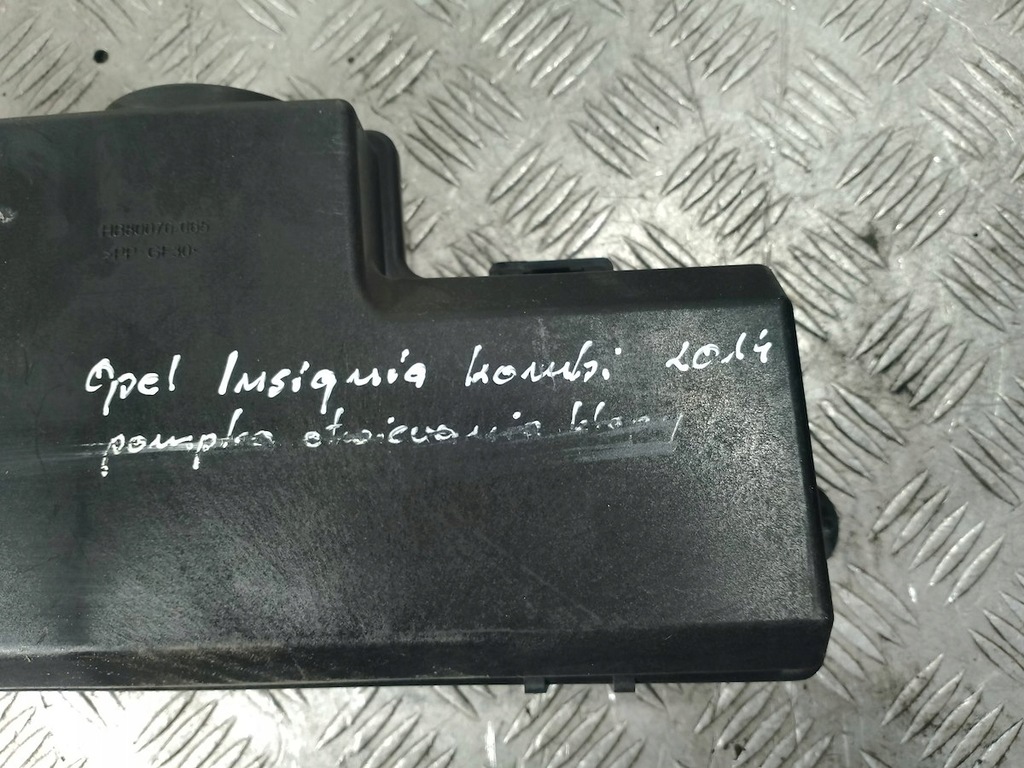 HB80070 005
>PP GF30<
Opel Insignia kombi 2014
pompka otwierania klapy